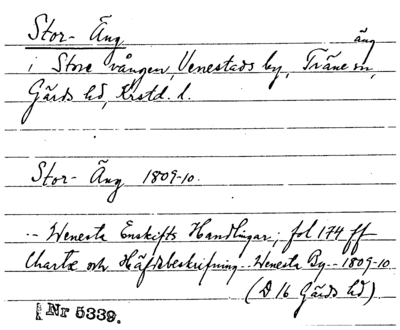 Stor- Äng
äng
i Store vången, Venestads by, Träne sn,
Gärds hd, Krstd. l.
Stor- Äng 1809-10.
-- Wenesta Enskifts Handlingar; fol 174 ff
Charta och Häfdebeskrifning -- Wenesta By -- 1809-10
(D 16 Gärds hd)
Nr 5339.